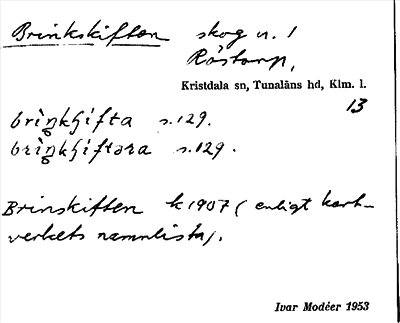 Brinkskiften skog u. 1
Röstorp,
Kristdala sn, Tunaläns hd, Klm. l.
13
s. 129.
s. 129.
Brinskiften k 1907 (enligt kart-
verkets namnlista).
Ivar Modéer 1953